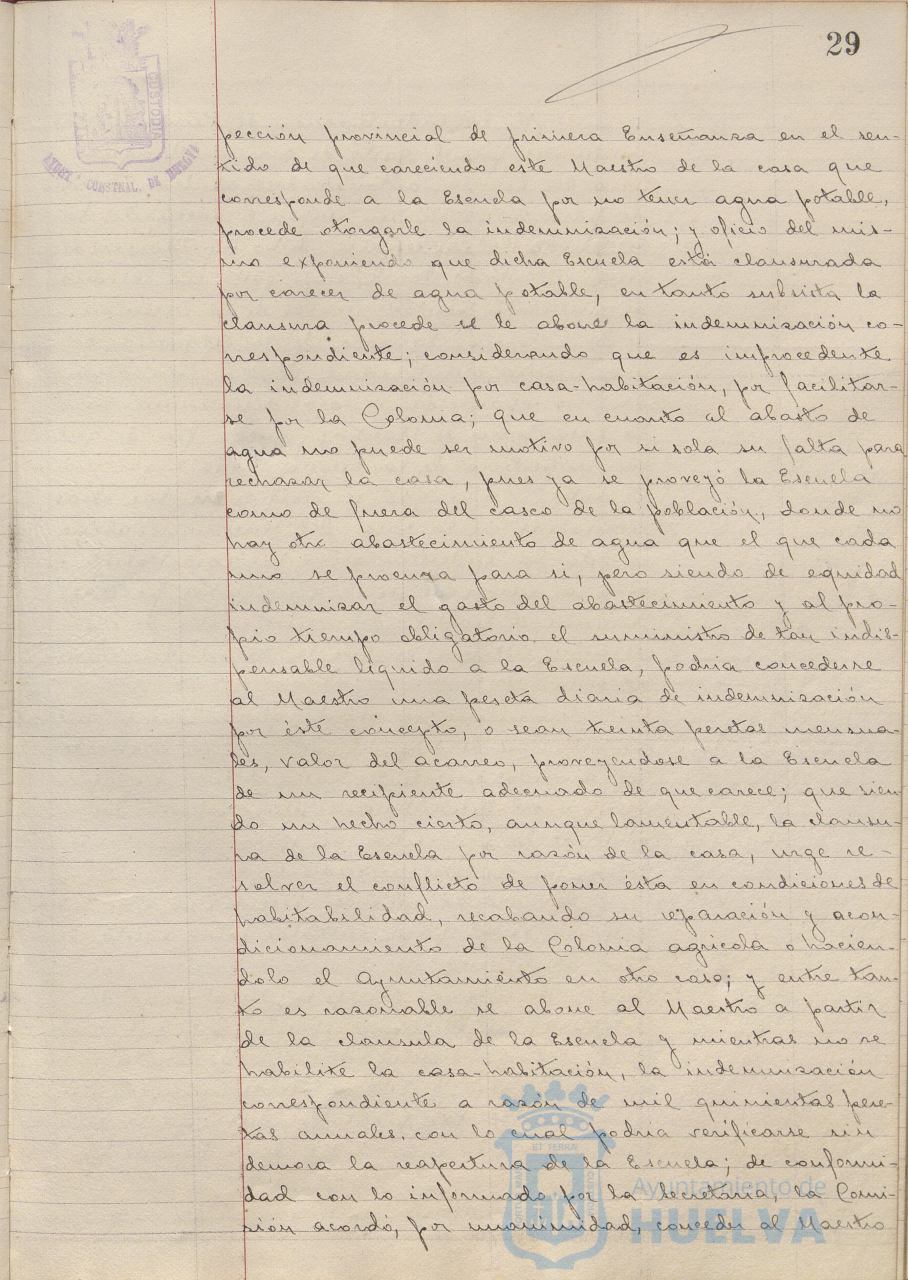 29
CUSTODIA
AYUNT. CONSTNAL. DE HUELVA
pección provincial de primera Enseñanza en el sen-
tido de que careciendo este Maestro de la casa que
corresponde a la Escuela por no tener agua potable,
procede otorgarle la indemnización; y oficio del mis-
mo exponiendo que dicha Escuela está clausurada
por carecer de agua potable, en tanto subsista la
clausura procede se le abone la indemnización co-
rrespondiente; considerando que es improcedente
la indemnización por casa-habitación, por facilitar-
se por la Colonia; que en cuanto al abasto de
agua no puede ser motivo por si sola su falta para
rechazar la casa, pues ya se proveyó la Escuela
como de fuera del casco de la población, donde no
hay otro abastecimiento de agua que el que cada
uno se procura para si, pero siendo de equidad
indemnizar el gasto del abastecimiento y al pro-
pio tiempo obligatorio el suministro de tan indis-
pensable líquido a la Escuela, podria concederse
al Maestro una peseta diaria de indemnización
por éste concepto, o sean treinta pesetas mensua-
les, valor del acarreo, proveyendose a la Escuela
de un recipiente adecuado de que carece; que sien-
do un hecho cierto, aunque lamentable, la clausu-
ra de la Escuela por razón de la casa, urge re-
solver el conflicto de poner ésta en condiciones de
habitabilidad, recabando su reparación y acon-
dicionamiento de la Colonia agricola o hacien-
dolo el Ayuntamiento en otro caso; y entre tan-
to es razonable se abone al Maestro a partir
de la clausula de la Escuela y mientras no se
habilite la casa-habitación, la indemnización
correspondiente a razón de mil quinientas pese-
tas anuales, con lo cual podria verificarse sin
demora la reapertura de la Escuela; de conformi-
dad con lo informado por la Secretaria, la Comi-
sión acordó, por unanimidad, conceder al Maestro
Ayuntamiento de
HUELVA